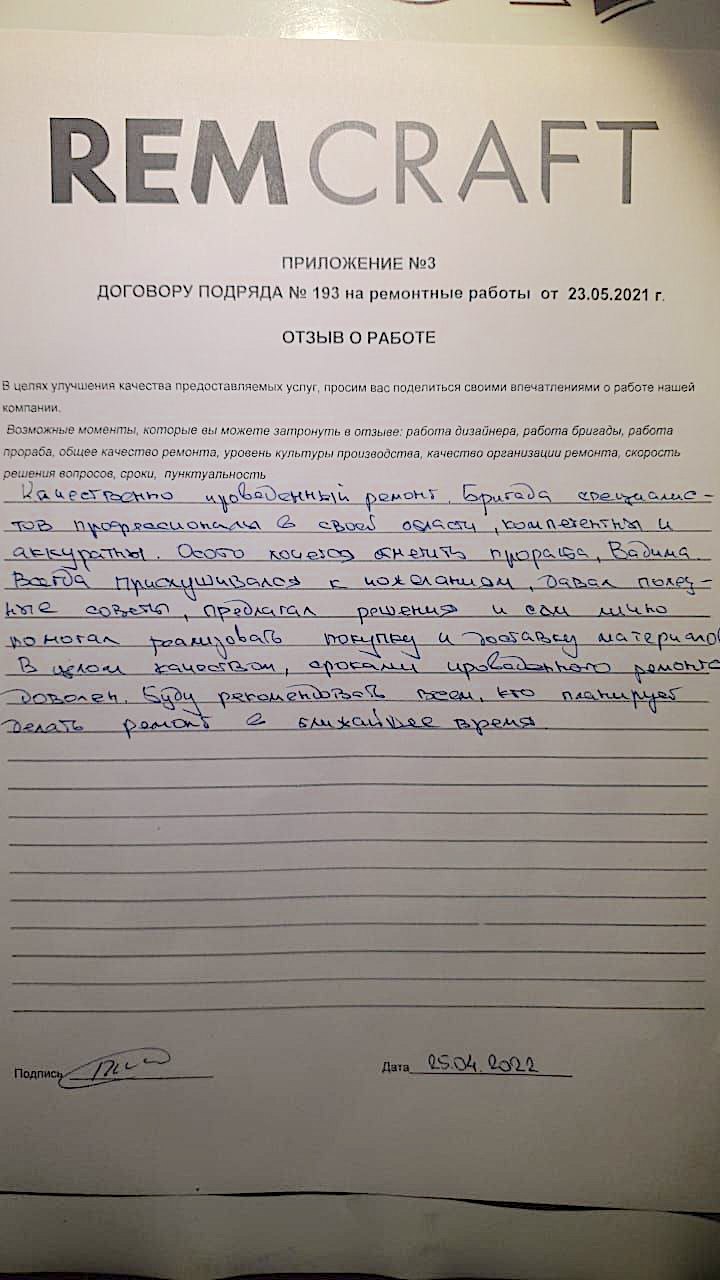 REMCRAFT
ПРИЛОЖЕНИЕ №3
ДОГОВОРУ ПОДРЯДА № 193 на ремонтные работы от 23.05.2021 г.
ОТЗЫВ О РАБОТЕ
В целях улучшения качества предоставляемых услуг, просим вас поделиться своими впечатлениями о работе нашей
компании.
Возможные моменты, которые вы можете затронуть в отзыве: работа дизайнера, работа бригады, работа
прораба, общее качество ремонта, уровень культуры производства, качество организации ремонта, скорость
решения вопросов, сроки, пунктуальность
Качественно проведенный ремонт. Бригада специалис-
тов профессионалы в своей области, компетентны и
аккуратны. Особо хочется отметить прораба, Вадима.
Всегда прислушивался к пожеланиям, давал полез-
ные советы, предлагал решения и сам лично
помогал реализовать покупку и доставку материалов
В целом качеством, сроками проведенного ремонта
доволен. Буду рекомендовать всем, кто планирует
делать ремонт в ближайшее время
Подпись
Дата 25.04.2022